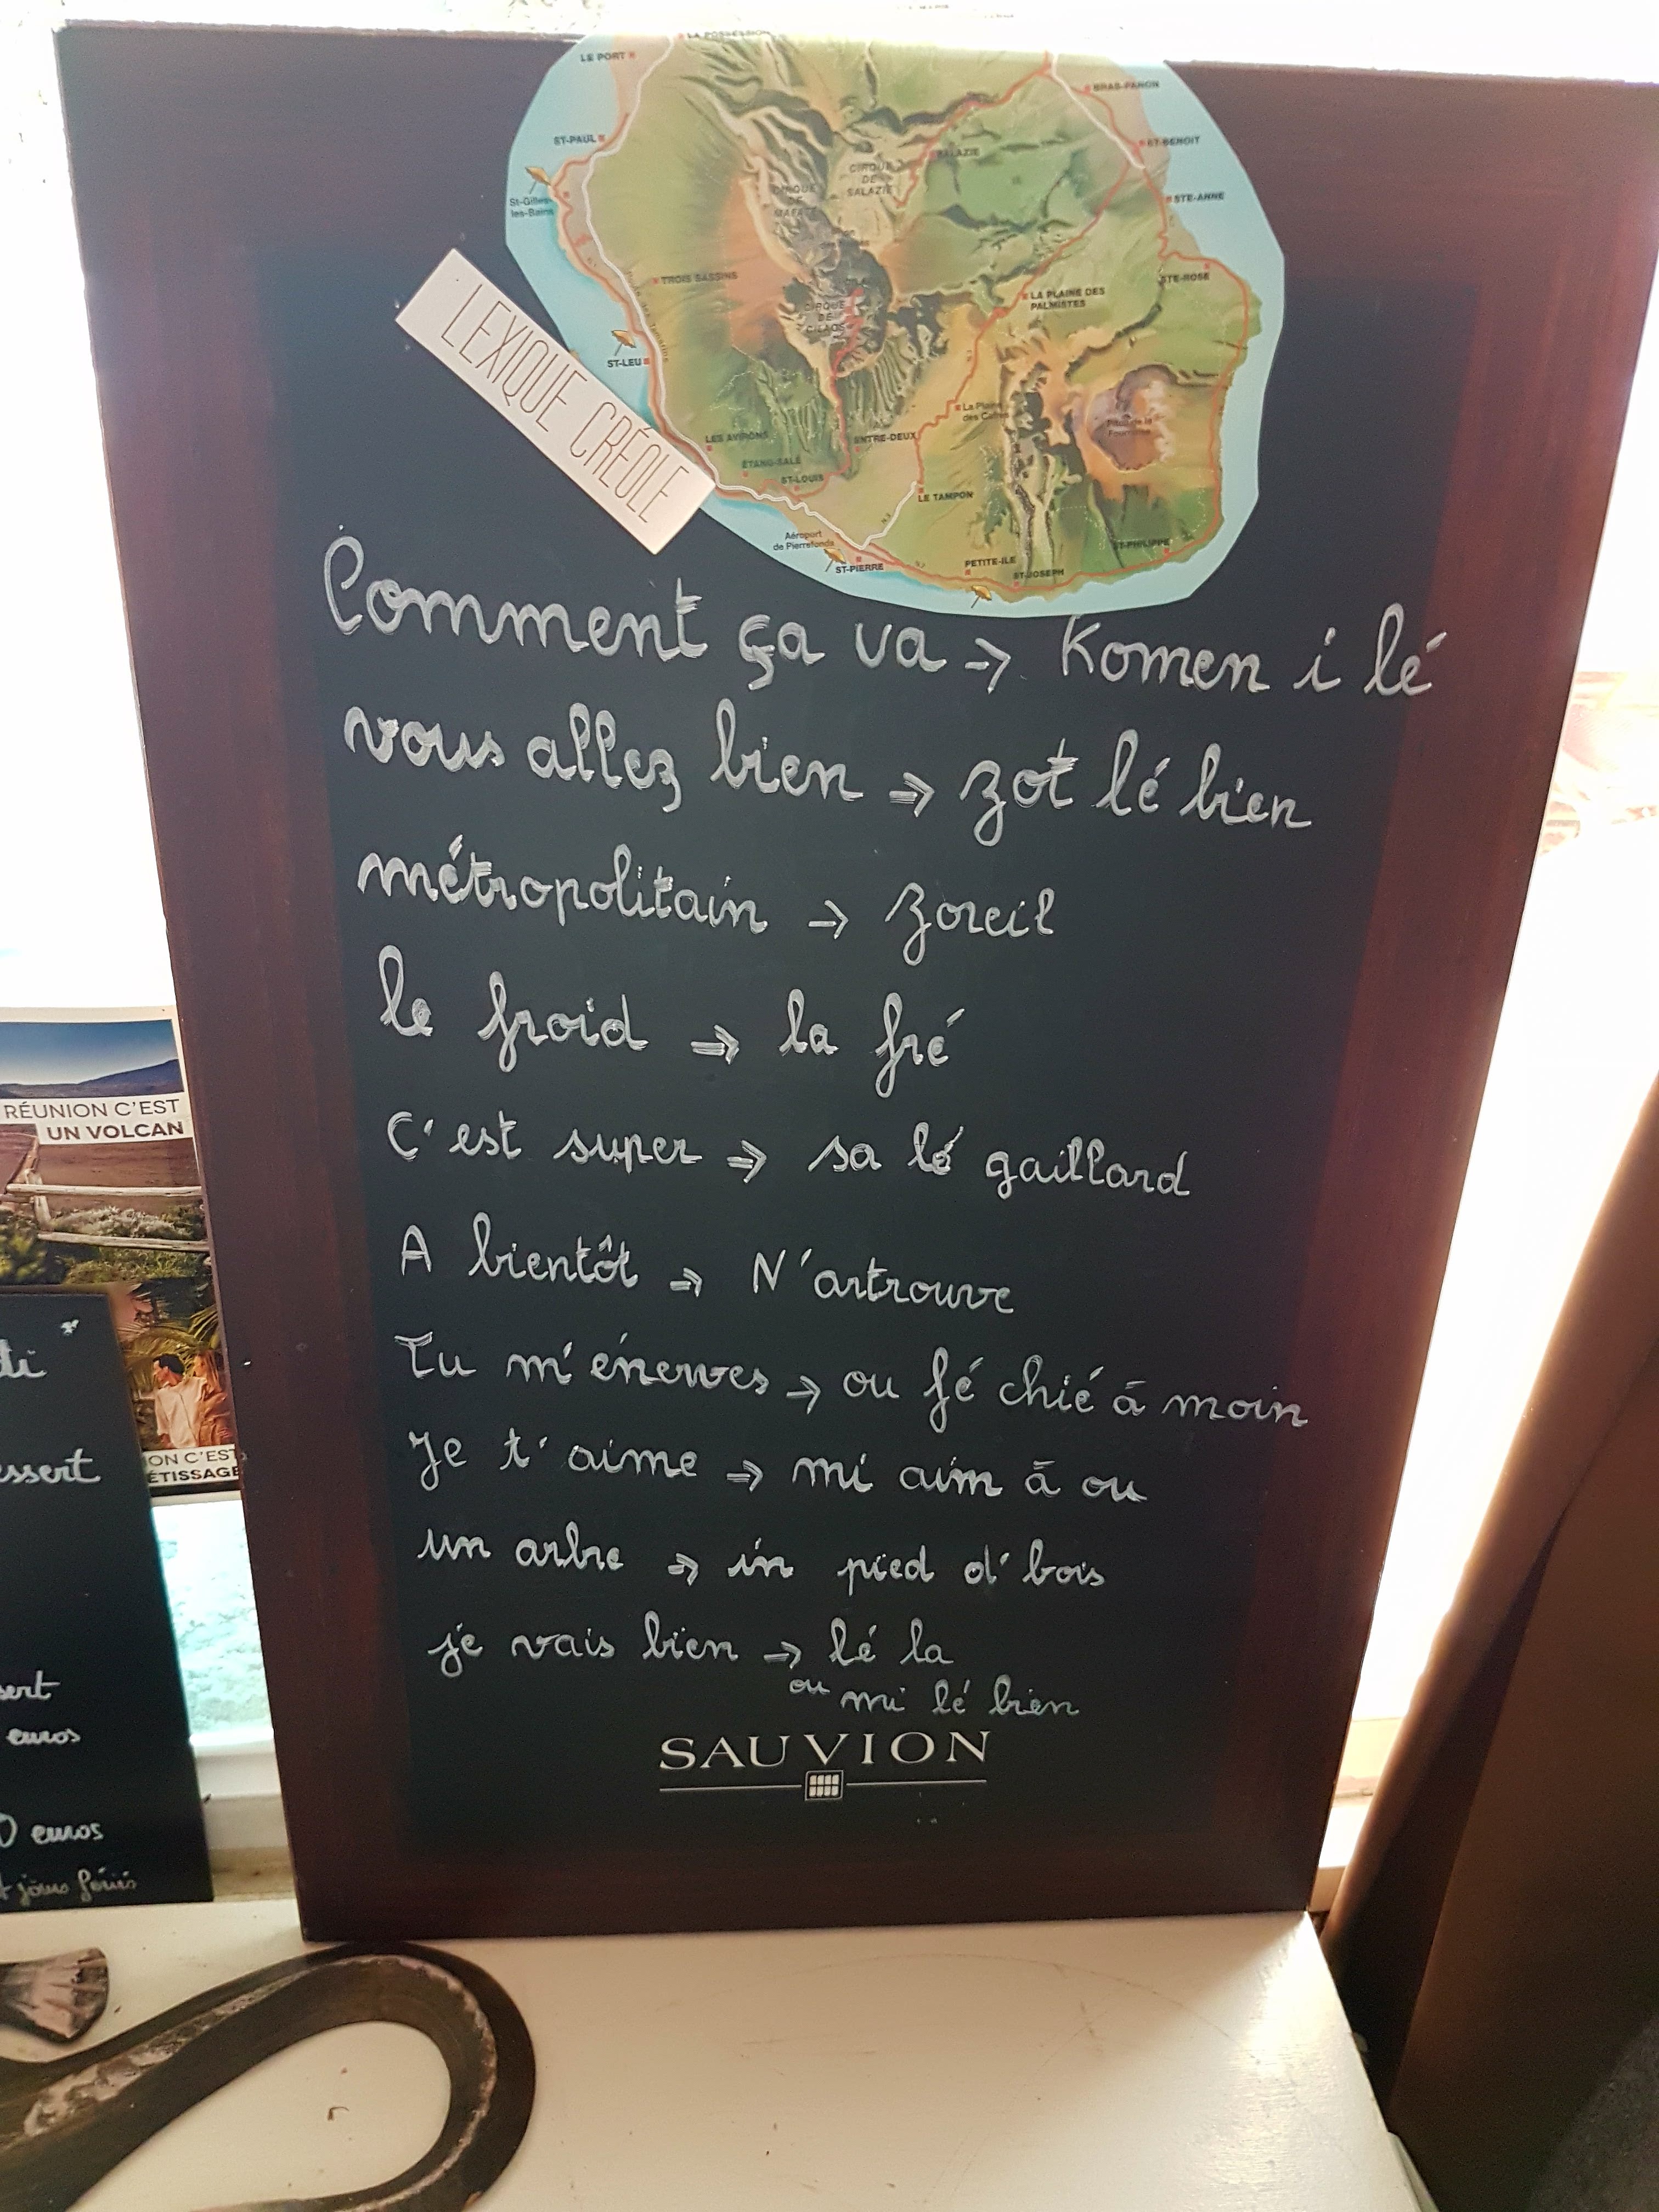 LA POSSESSION
LE PORT
BRAS-PANON
ST-PAUL
ST-BENOIT
SALAZIE
CIRQUE
DE
SALAZIE
CIRQUE
DE
MAFATE
STE-ANNE
St-Gilles-
les-Bains
STE-ROSE
TROIS BASSINS
LA PLAINE DES
PALMISTES
CIRQUE
DE
CILAOS
ST-LEU
La Plaine
des Cafres
Piton de la
Fournaise
LES AVIRONS
ENTRE-DEUX
ÉTANG-SALÉ
ST-LOUIS
LE TAMPON
Aéroport
de Pierrefonds
ST-PIERRE
PETITE-ILE
ST-JOSEPH
ST-PHILIPPE
LEXIQUE CRÉOLE
Comment ça va → Komen i lé
vous allez bien → zot lé bien
métropolitain → zoreil
le froid → la fré
C'est super → sa lé gaillard
A bientôt → N'artrouve
Tu m'énerves → ou fé chié à moin
Je t'aime → mi aim à ou
un arbre → in pied d'bois
je vais bien → lé la
ou mi lé bien
SAUVION
RÉUNION C'EST
UN VOLCAN
ON C'EST
ÉTISSAGE
di
essert
sert
euros
0 euros
t jours fériés